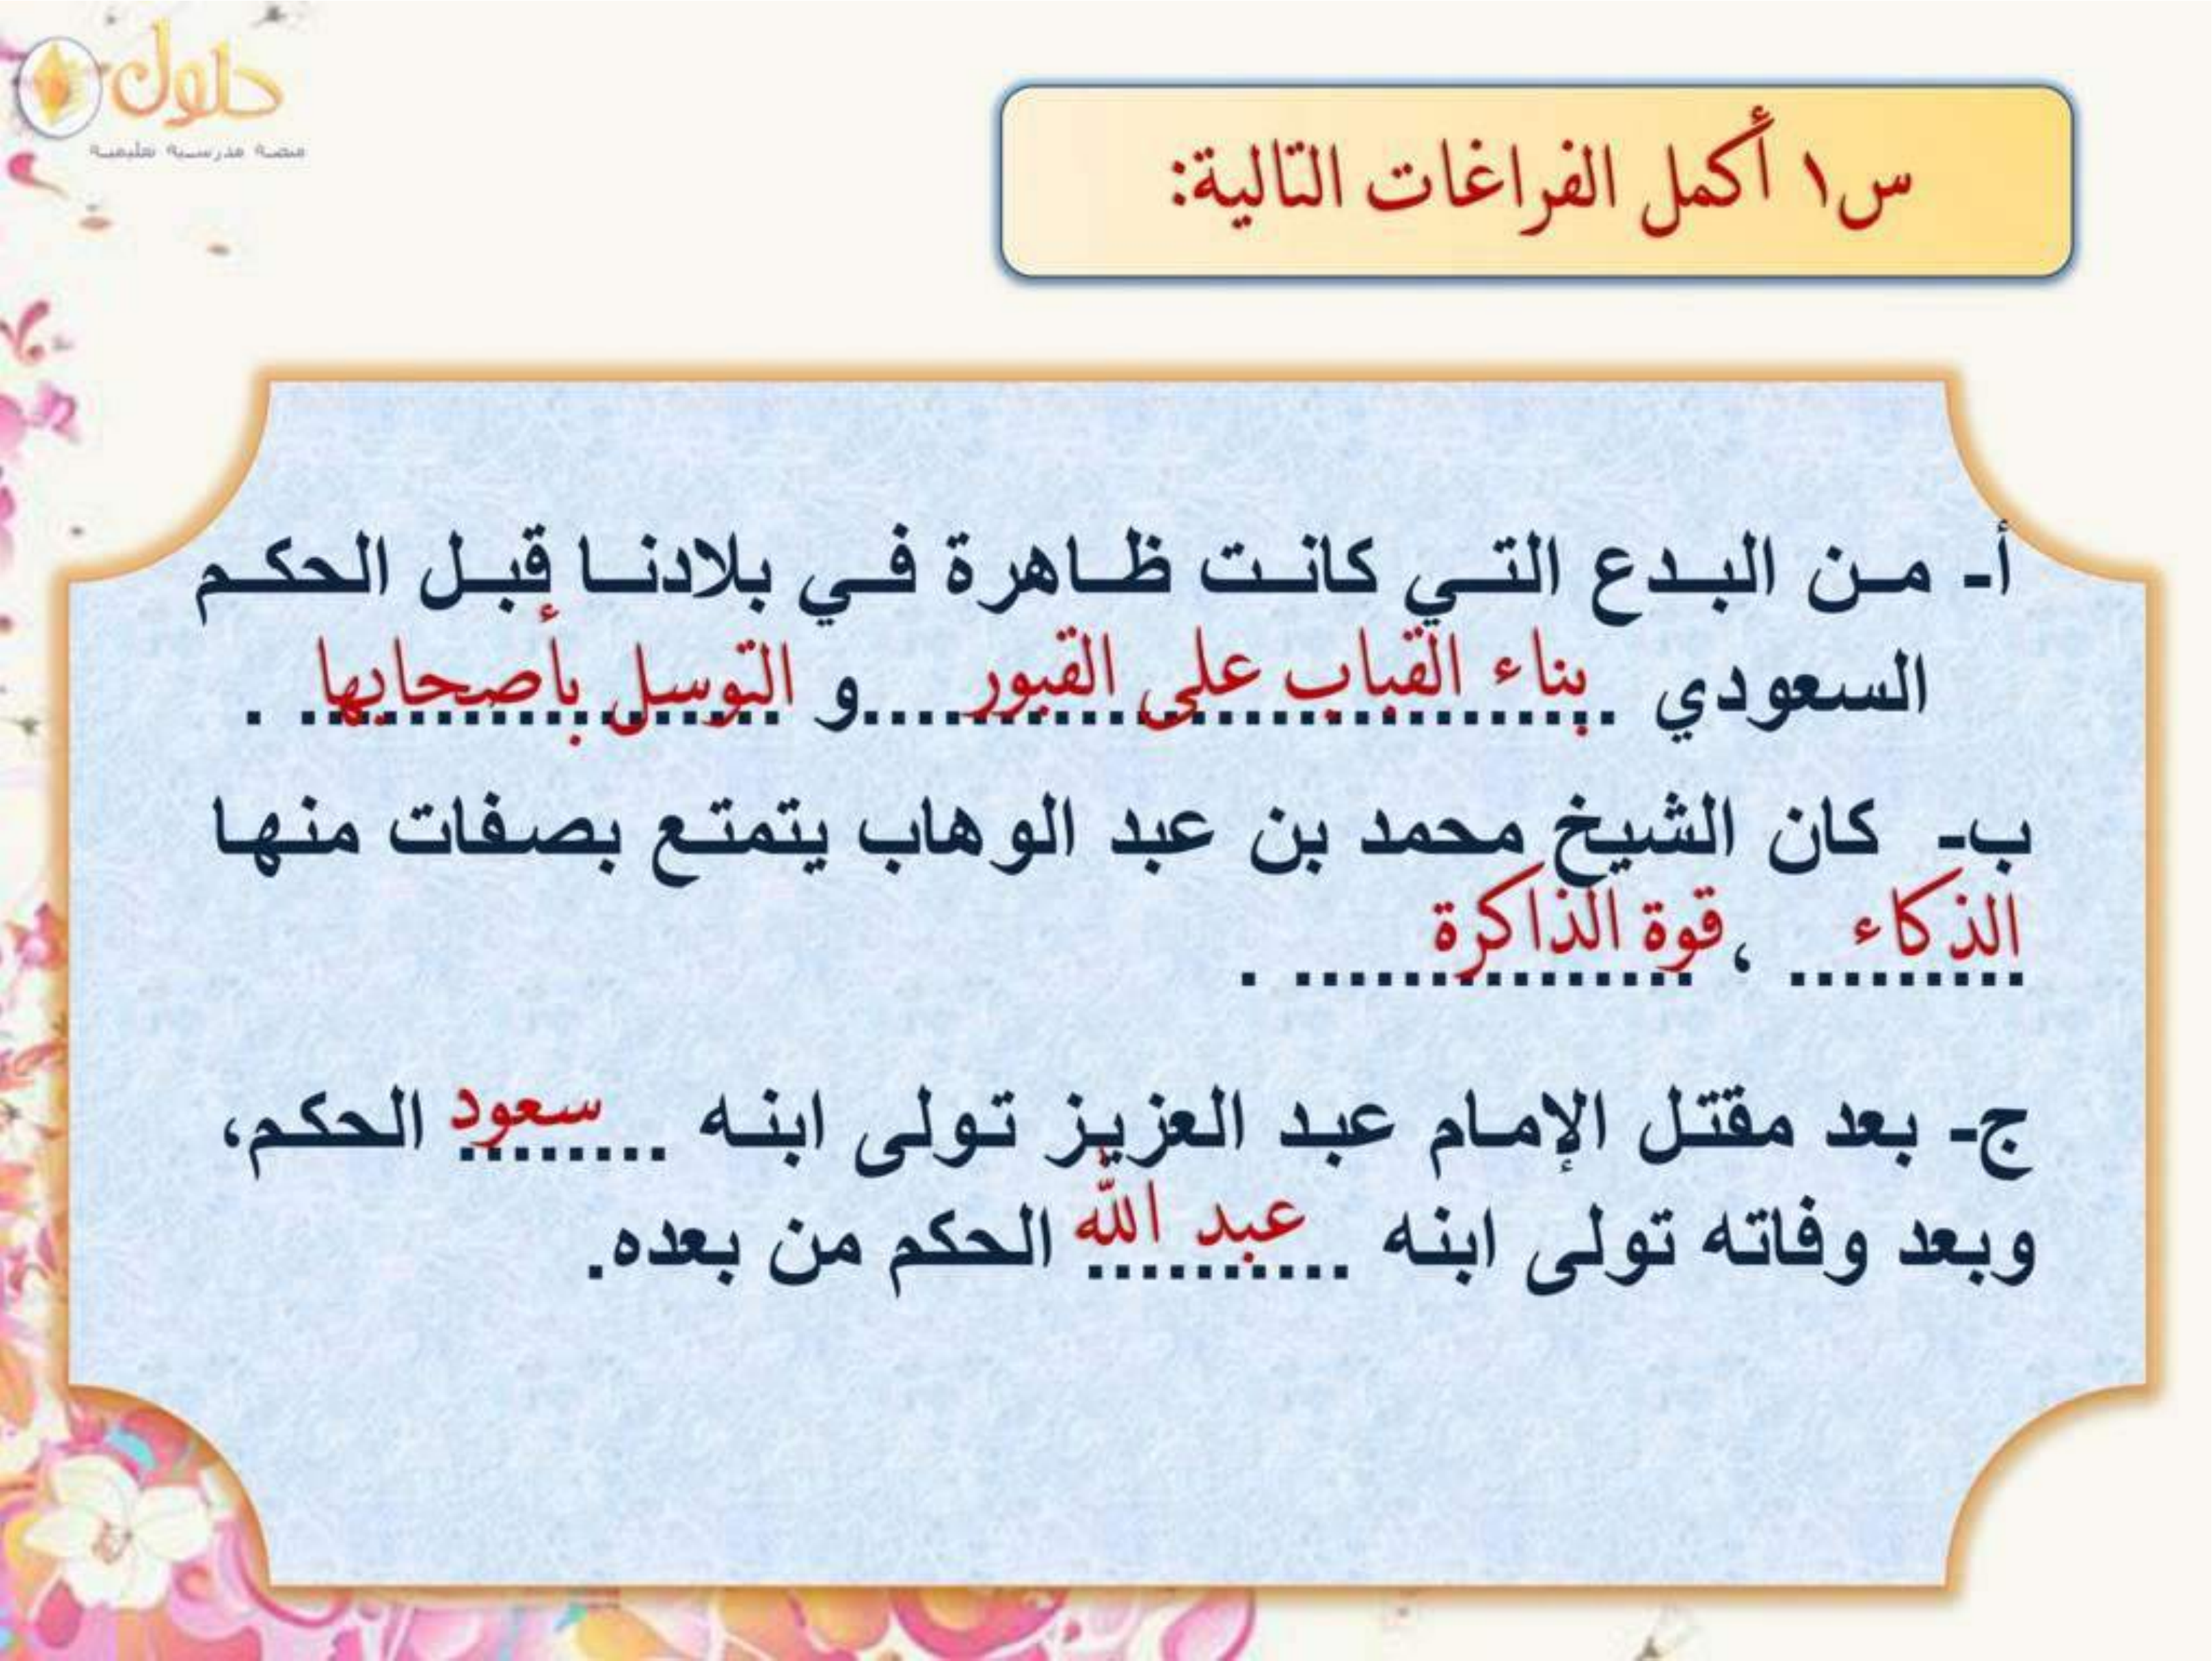 حلول
منصة مدرسية تعليمية
س١ أكمل الفراغات التالية:
أ- من البدع التي كانت ظاهرة في بلادنا قبل الحكم
السعودي بناء القباب على القبور و التوسل بأصحابها .
ب- كان الشيخ محمد بن عبد الوهاب يتمتع بصفات منها
الذكاء ، قوة الذاكرة .
ج- بعد مقتل الإمام عبد العزيز تولى ابنه سعود الحكم،
وبعد وفاته تولى ابنه عبد الله الحكم من بعده.